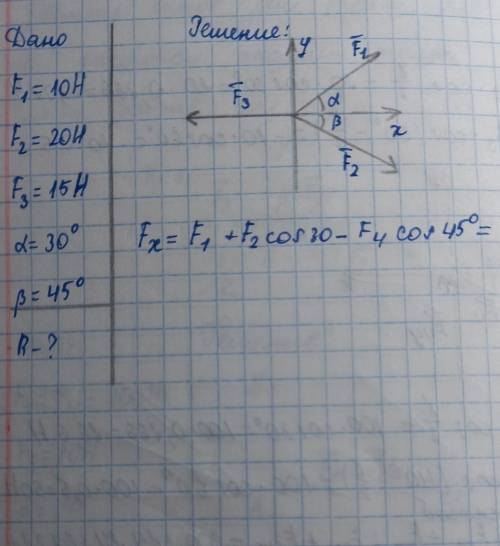 Дано
F₁ = 10Н
F₂ = 20Н
F₃ = 15Н
α = 30°
β = 45°
R - ?
Решение:
y
F̅₁
F̅₃
α
β
x
F̅₂
Fₓ = F₁ + F₂ cos 30 - F₄ cos 45° =